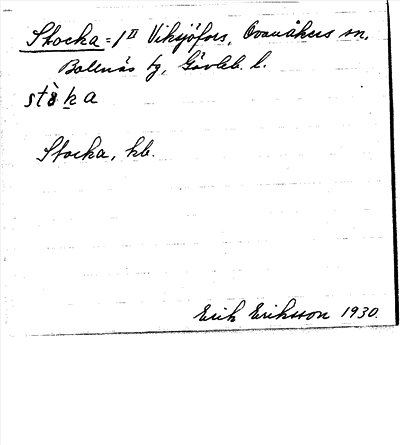 Stocka = 1 II Viksjöfors, Ovanåkers sn,
Bollnäs tg, Gävleb. l.
Stocka, hb.
Erik Eriksson 1930.